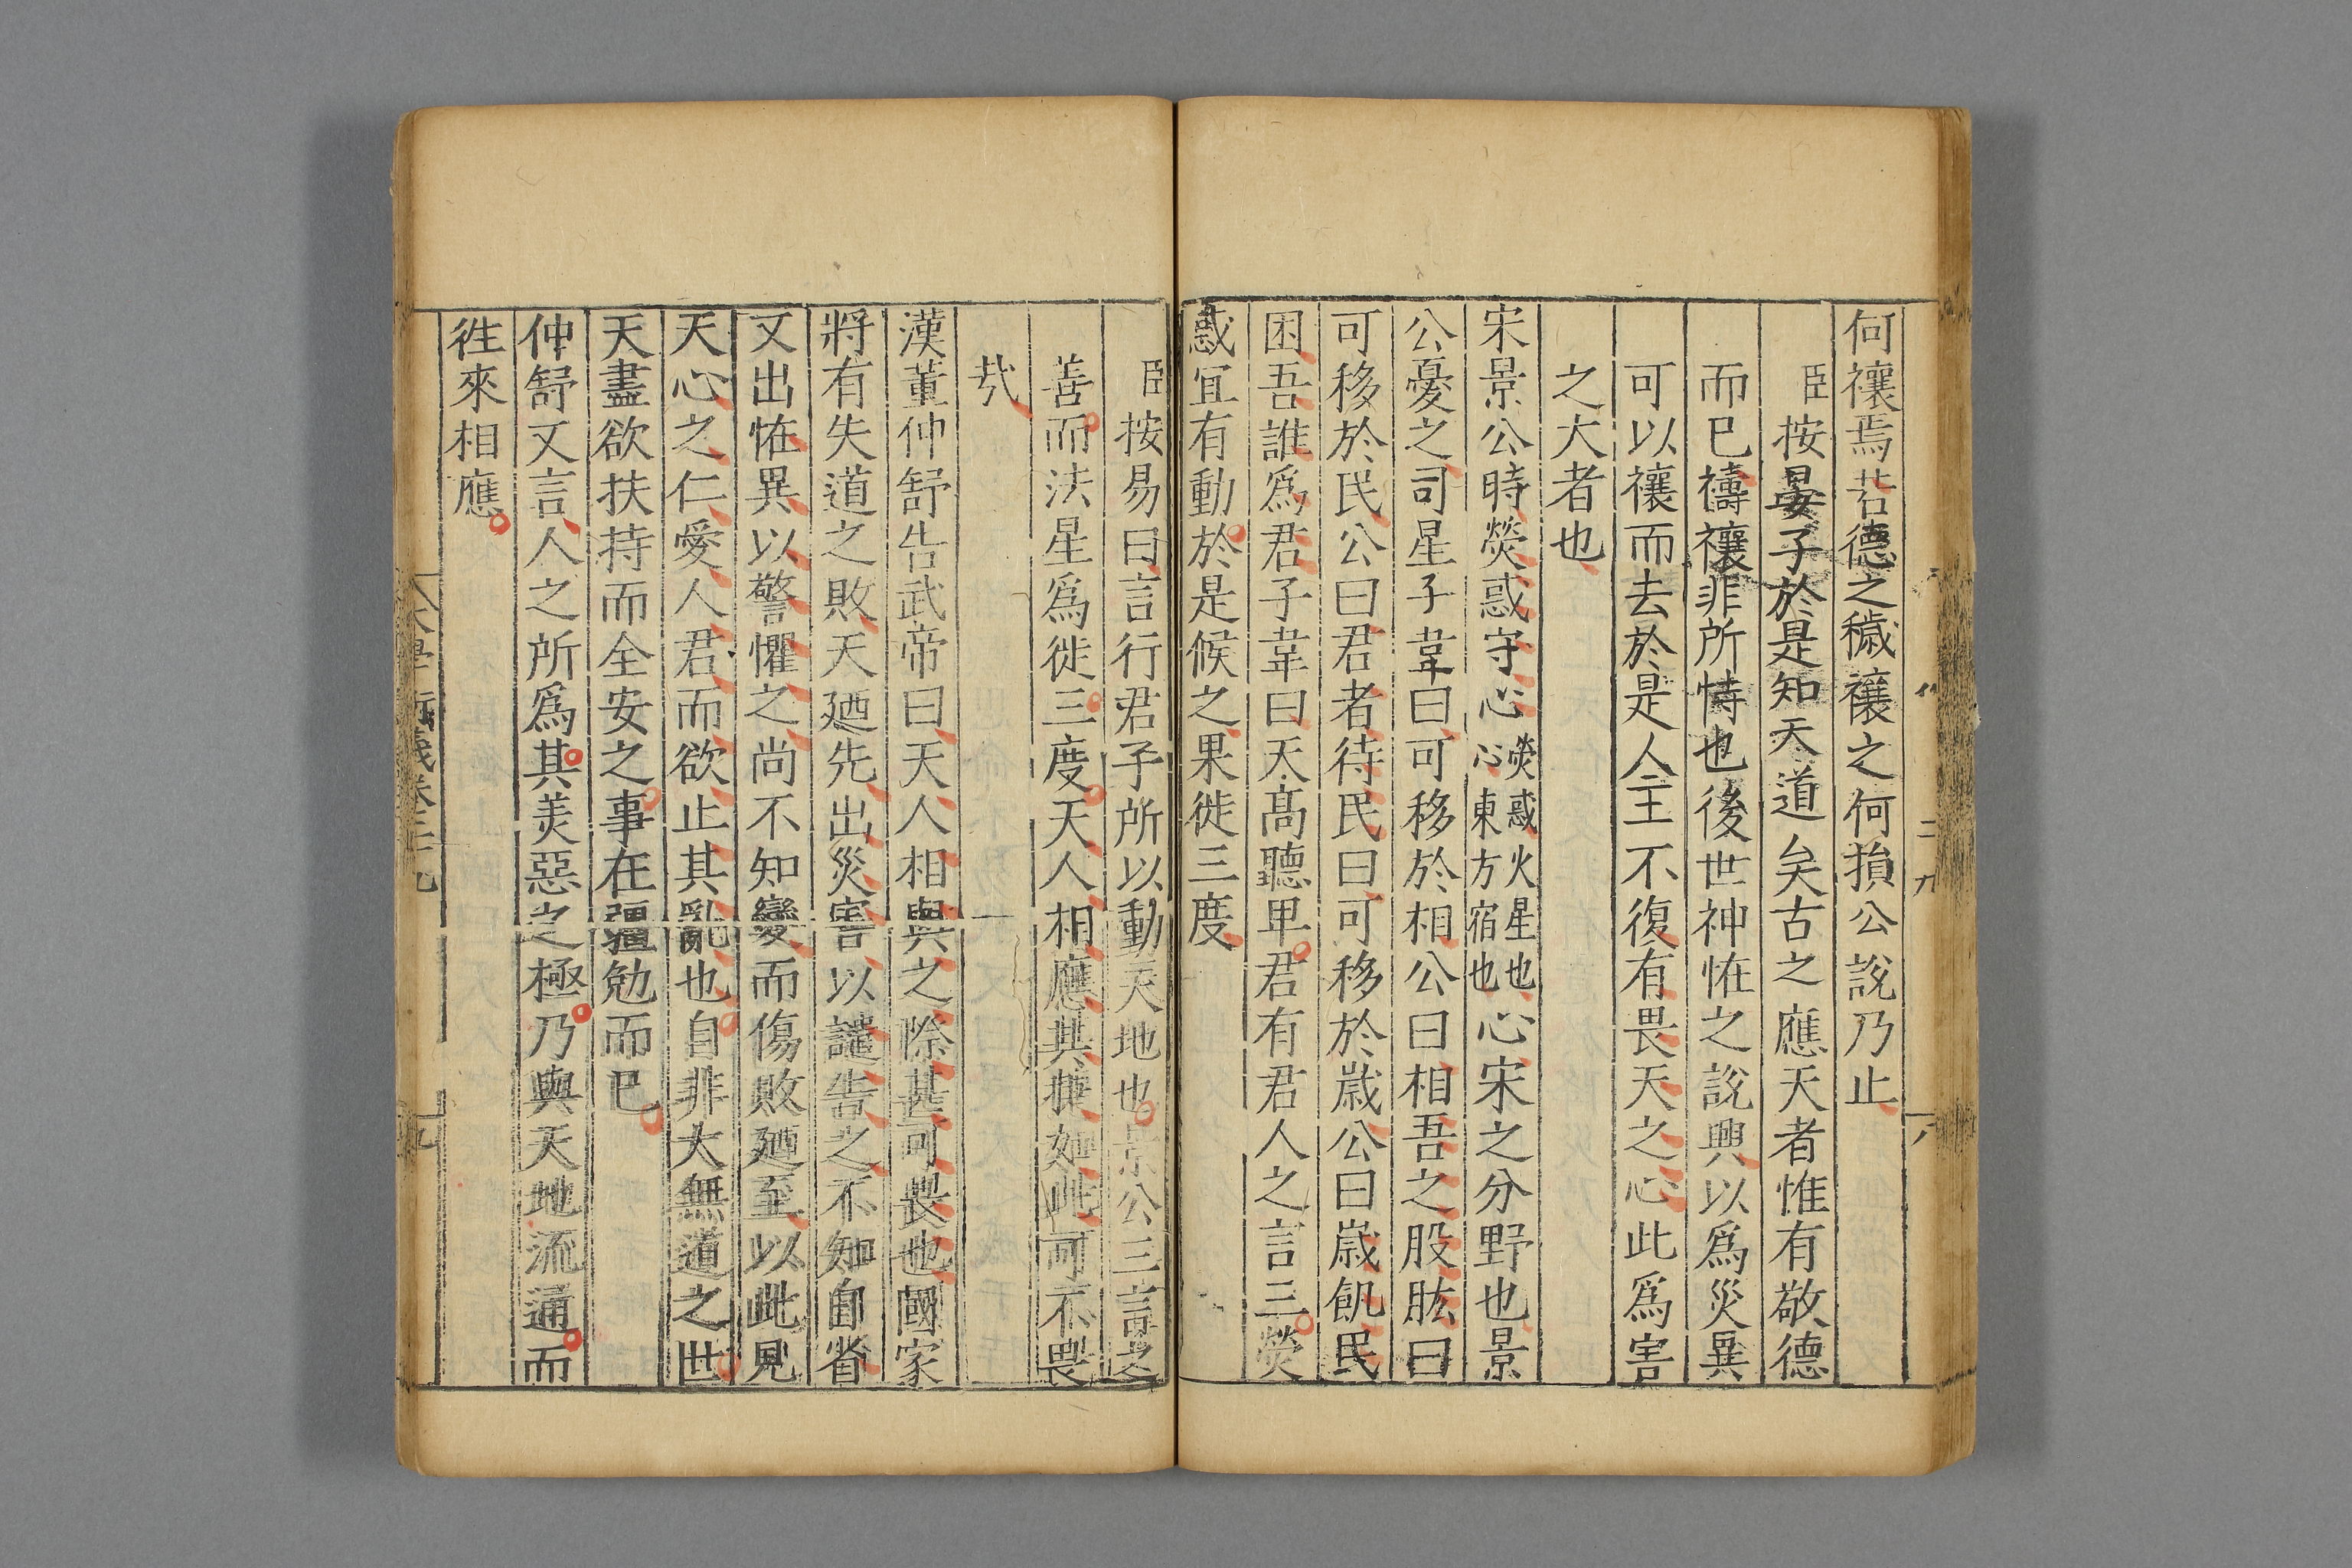 何禳焉若德之穢禳之何損公說乃止
臣按晏子於是知天道矣古之應天者惟有敬德
而已禱禳非所恃也後世神恠之說興以爲災異
可以禳而去於是人主不復有畏天之心此爲害
之大者也
宋景公時熒惑守心熒惑火星也心東方宿也心宋之分野也景
公憂之司星子韋曰可移於相公曰相吾之股肱曰
可移於民公曰君者待民曰可移於歲公曰歲飢民
困吾誰爲君子韋曰天高聽卑君有君人之言三熒
惑宜有動於是候之果徙三度
臣按易曰言行君子所以動天地也景公三言之
善而法星爲徙三度天人相應其捷如此可不畏
哉
漢董仲舒告武帝曰天人相與之際甚可畏也國家
將有失道之敗天廼先出災害以譴告之不知自省
又出恠異以警懼之尚不知變而傷敗廼至以此見
天心之仁愛人君而欲止其亂也自非大無道之世
天盡欲扶持而全安之事在彊勉而已
仲舒又言人之所爲其美惡之極乃與天地流通而
徃來相應
大學衍義卷二十九
九